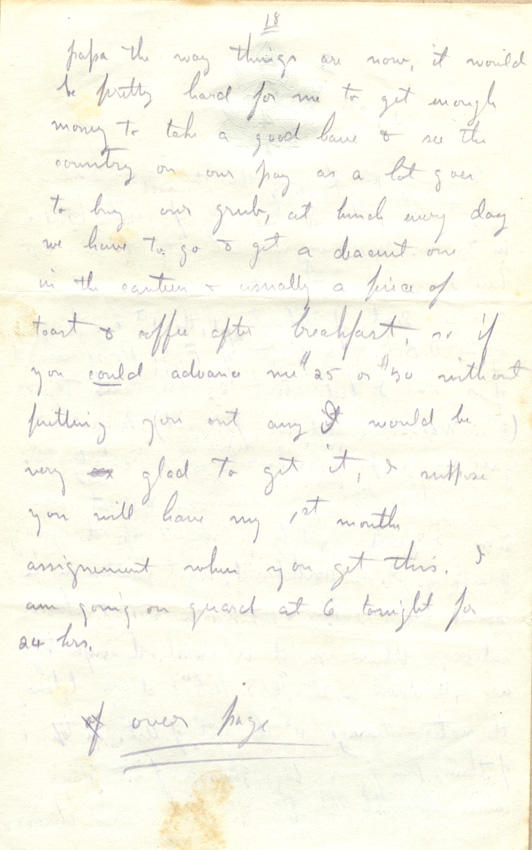 18
papa the way things are now, it would
be pretty hard for me to get enough
money to take a good leave & see the
country on our pay as a lot goes
to buy our grub, at lunch every day
we have to go & get a deacent one
in the canteen & usually a piece of
toast & coffee after breakfast, so if
you could advance me $25 or $30 without
putting you out any I would be
very glad to get it, I suppose
you will have my 1st months
assignement when you get this. I
am going on guard at 6 tonight for
24 hrs.
over page